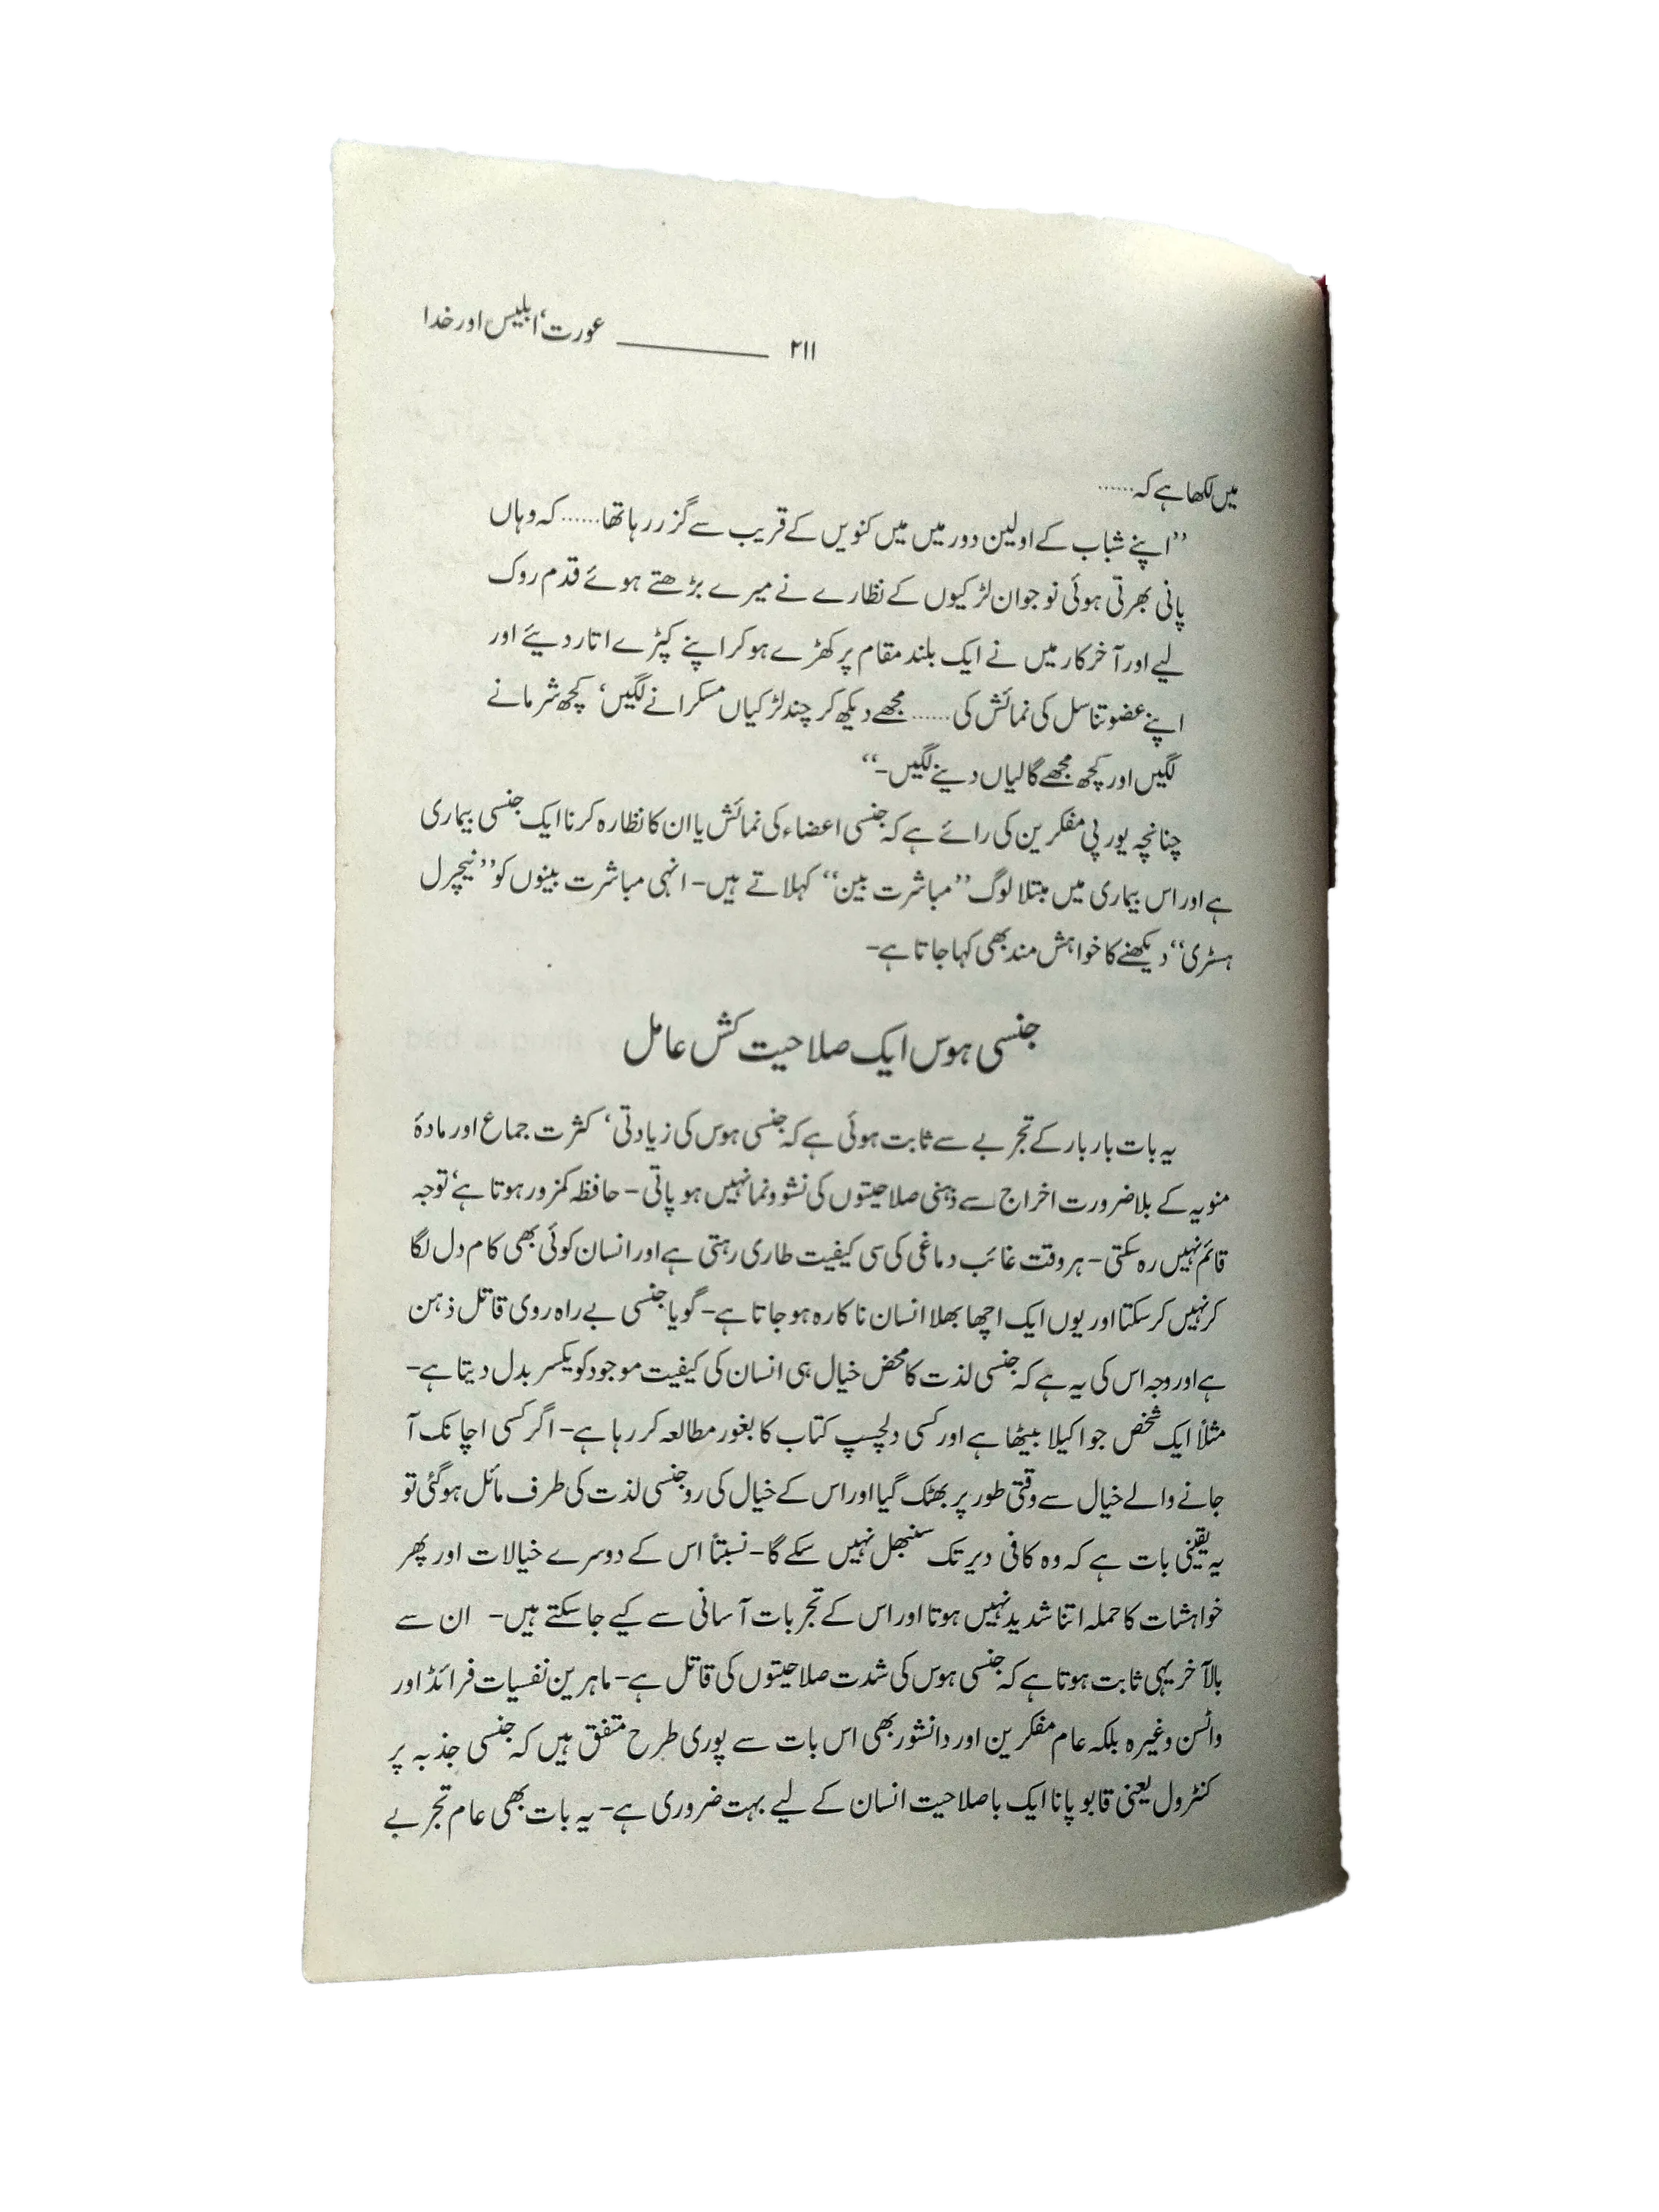 عورت‘ ابلیس اور خدا ــــــــــــ ۲۱۱
میں لکھا ہے کہ......
’’اپنے شباب کے اولین دور میں میں کنویں کے قریب سے گزر رہا تھا...... کہ وہاں
پانی بھرتی ہوئی نوجوان لڑکیوں کے نظارے نے میرے بڑھتے ہوئے قدم روک
لیے اور آخر کار میں نے ایک بلند مقام پر کھڑے ہو کر اپنے کپڑے اتار دیئے اور
اپنے عضو تناسل کی نمائش کی...... مجھے دیکھ کر چند لڑکیاں مسکرانے لگیں‘ کچھ شرمانے
لگیں اور کچھ مجھے گالیاں دینے لگیں-‘‘
چنانچہ یورپی مفکرین کی رائے ہے کہ جنسی اعضاء کی نمائش یا ان کا نظارہ کرنا ایک جنسی بیماری
ہے اور اس بیماری میں مبتلا لوگ ’’مباشرت بین‘‘ کہلاتے ہیں- انہی مباشرت بینوں کو ’’نیچرل
ہسٹری‘‘ دیکھنے کا خواہش مند بھی کہا جاتا ہے-
جنسی ہوس ایک صلاحیت کش عامل
یہ بات بار بار کے تجربے سے ثابت ہوئی ہے کہ جنسی ہوس کی زیادتی‘ کثرت جماع اور مادۂ
منویہ کے بلا ضرورت اخراج سے ذہنی صلاحیتوں کی نشوونما نہیں ہو پاتی- حافظہ کمزور ہوتا ہے‘ توجہ
قائم نہیں رہ سکتی- ہر وقت غائب دماغی کی سی کیفیت طاری رہتی ہے اور انسان کوئی بھی کام دل لگا
کر نہیں کر سکتا اور یوں ایک اچھا بھلا انسان ناکارہ ہو جاتا ہے- گویا جنسی بے راہ روی قاتل ذہن
ہے اور وجہ اس کی یہ ہے کہ جنسی لذت کا محض خیال ہی انسان کی کیفیت موجود کو یکسر بدل دیتا ہے-
مثلاً ایک شخص جو اکیلا بیٹھا ہے اور کسی دلچسپ کتاب کا بغور مطالعہ کر رہا ہے- اگر کسی اچانک آ
جانے والے خیال سے وقتی طور پر بھٹک گیا اور اس کے خیال کی رو جنسی لذت کی طرف مائل ہو گئی تو
یہ یقینی بات ہے کہ وہ کافی دیر تک سنبھل نہیں سکے گا- نسبتاً اس کے دوسرے خیالات اور پھر
خواہشات کا حملہ اتنا شدید نہیں ہوتا اور اس کے تجربات آسانی سے کیے جا سکتے ہیں- ان سے
بالآخر یہی ثابت ہوتا ہے کہ جنسی ہوس کی شدت صلاحیتوں کی قاتل ہے- ماہرین نفسیات فرائڈ اور
واٹسن وغیرہ بلکہ عام مفکرین اور دانشور بھی اس بات سے پوری طرح متفق ہیں کہ جنسی جذبہ پر
کنٹرول یعنی قابو پانا ایک باصلاحیت انسان کے لیے بہت ضروری ہے- یہ بات بھی عام تجربے